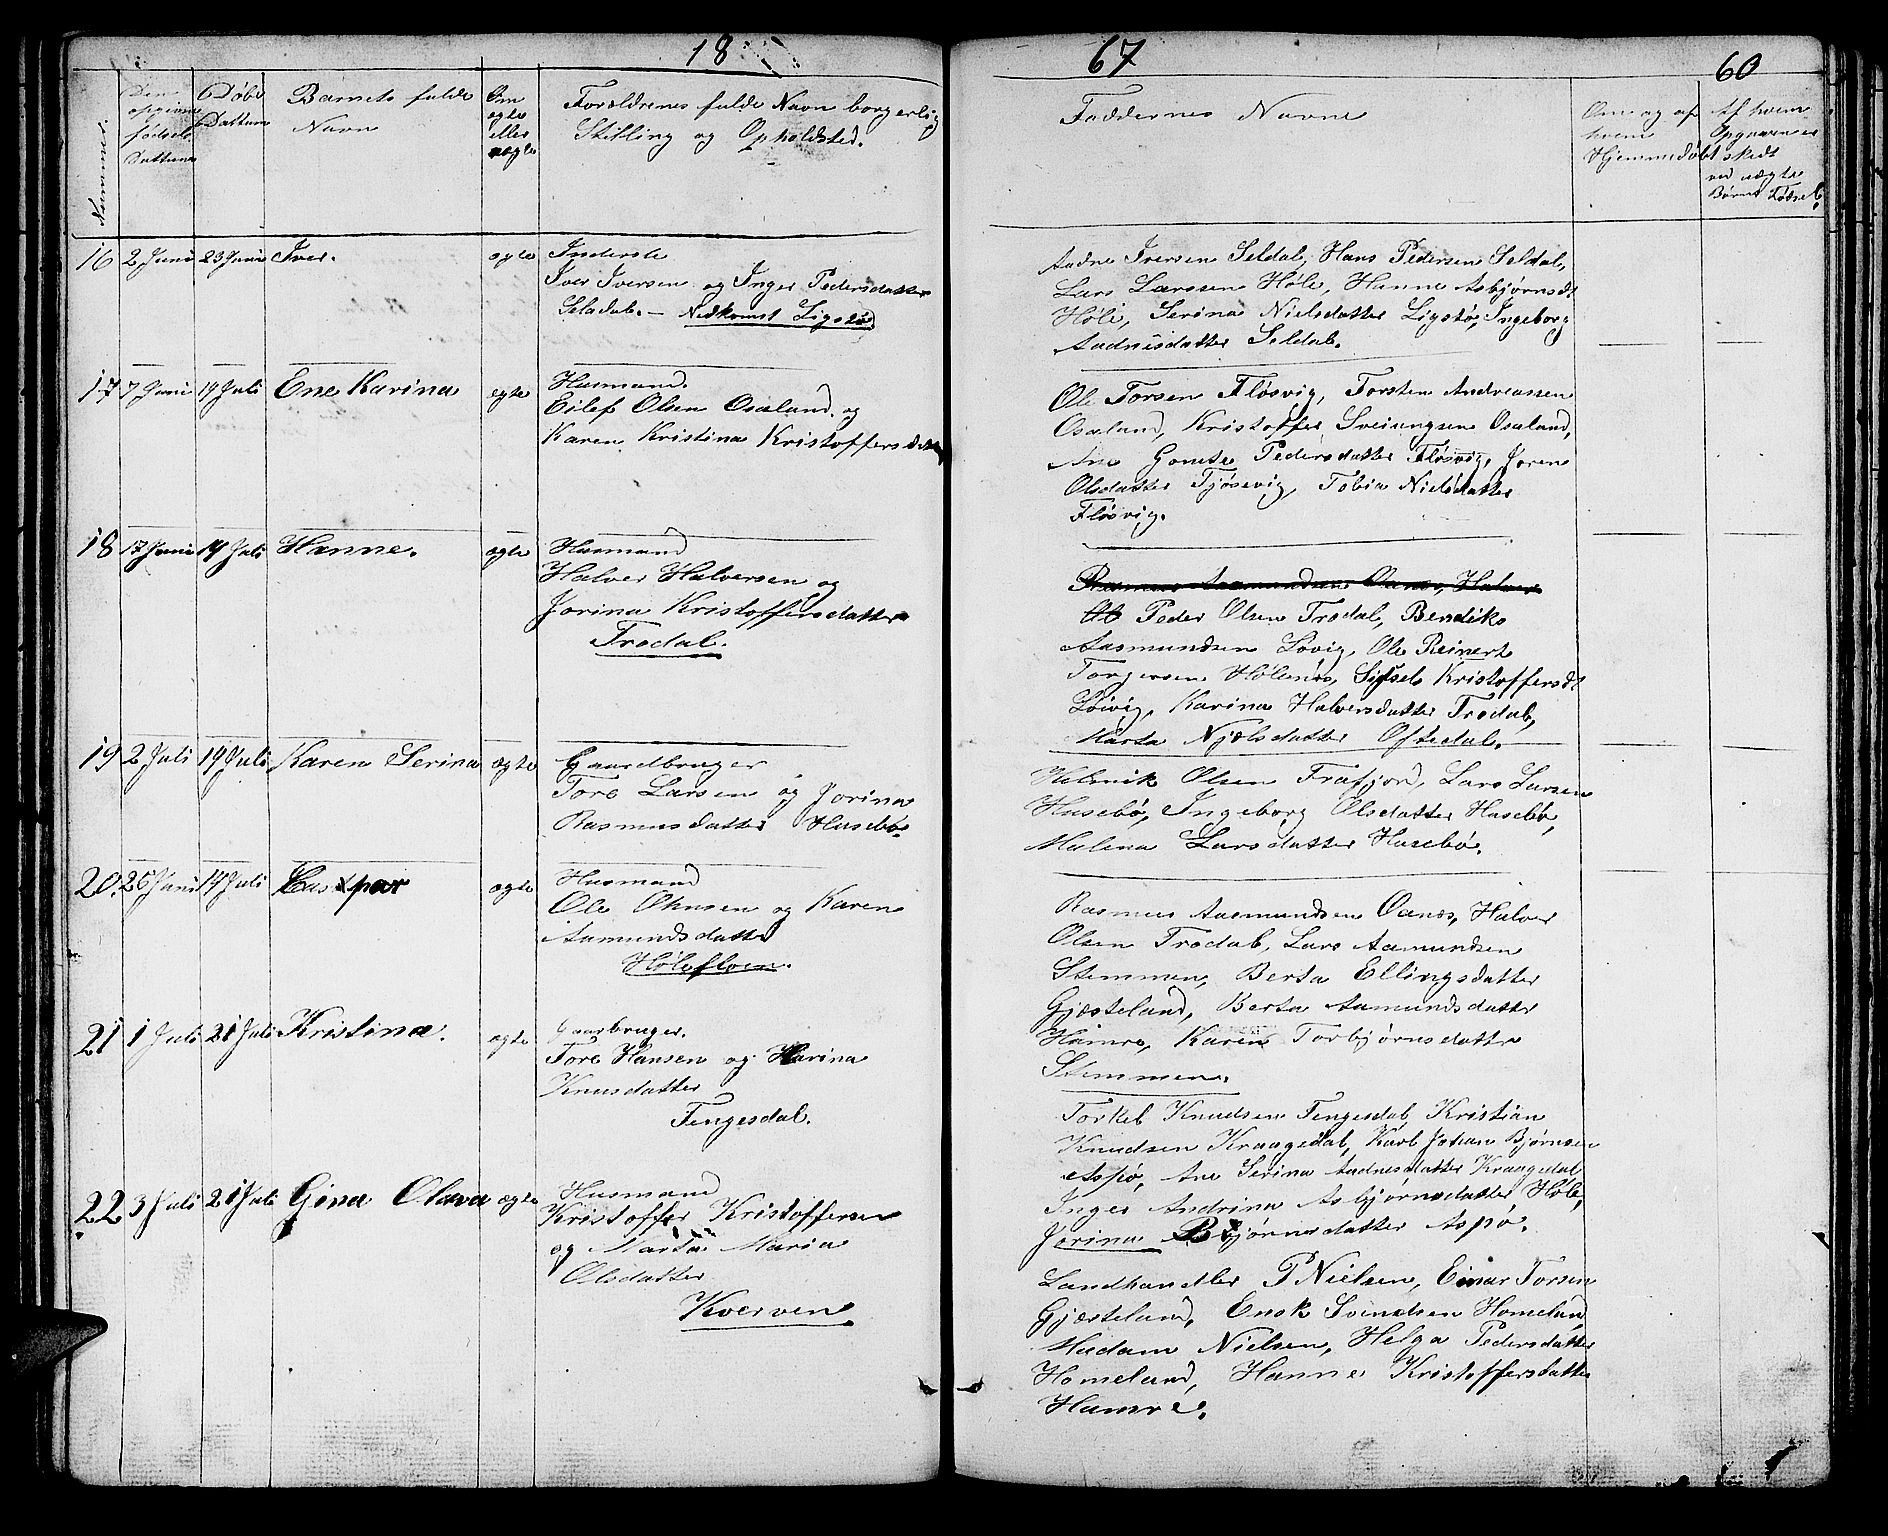 18
67
60
Nummer.
Den opgivne fødsels Dattum
Døbe Dattum
Barnets fulde Navn
Om ægte eller uægte
Forældrenes fulde Navn borgerlig
Stilling og Opholdsted.
Faddernes Navne
Om og af hvem Hjemmedøbt
Af hvem Opgaven er skedt ved uægte Børns Fødsel.
16 2 Juni 23 Juni Iver. ægte Inderste
Iver Iversen og Inger Pedersdatter
Seldal. – Nedkomst Ligstø
Aadne Iversen Seldal, Hans Pedersen Seldal,
Lars Larssen Høle, Hanne Asbjørnsdt
Høle, Serina Nielsdatter Ligstø, Ingeborg
Aadnesdatter Seldal.
17 7 Juni 14 Juli Ene Karina egte Husmand.
Eilef Olsen Osaland. og
Karen Kristina Kristoffersdatt
Ole Torsen Fløsvig, Torsten Andreassen
Osaland, Kristoffer Sveiungsen Osaland,
Ane Gonete Pedersdatter Fløsvig, Jorene
Olsdatter Tjøsevig, Tobia Nielsdatter
Fløsvig.
18 17 Juni 14 Juli Hanne. ægte Husmand
Halver Halversen og
Jorina Kristoffersdatter
Trodal.
Rasmus Aasmundsen Oanes, Halver
Ol Peder Olsen Trodal, Bendiks
Aasmundsen Løvig, Ole Reinert
Torgersen Hølenes, Sissels Kristoffersdt
Løivig, Karina Halversdatter Trodal,
Marta Njælsdatter Oftedal.
19 2 Juli 14 Juli Karen Serina ægte Gaardbruger
Tore Larsen og Jorina
Rasmusdatter Husebø.
Helmik Olsen Frafjord, Lars Larsen
Husebø, Ingeborg Olsdatter Husebø,
Malena Larsdatter Husebø.
20. 26 Juni 14 Juli Caspar ægte Husmand
Ole Olsusen og Karen
Aamundsdatter
Hølefloen.
Rasmus Aasmundsen Oanes, Halver
Olsen Trodal, Lars Aamundsen
Stemmen, Berta Ellingsdatter
Gjæsteland, Berta Aamundsdatter
Hamre, Karen Torbjørnsdatter
Stemmen.
21 1 Juli 21 Juli Kristina. ægte Gaarbruger.
Tore Hansen og Karina
Knusdatter
Tengesdal.
Torkel Knudsen Tengesdal, Kristian
Knudsen Kraagedal, Karl Johan Bjørnsen
Aspø, Ane Serina Aadnesdatter Kraagedal
Inger Andrina Asbjørnsdatter Høle,
Jorina Bjørnsdatter Aspø.
22 3 Juli 21 Juli Gina Olava ægte Husmand
Kristoffer Kristoffersen
og Marta Maria
Olsdatter
Kverven.
Landhandler P Nielsen, Einar Torsen
Gjæsteland, Enok Svendsen Homeland
Madam Nielsen, Helga Pedersdatter
Homeland, Hanne Kristoffersdatter
Hamre.